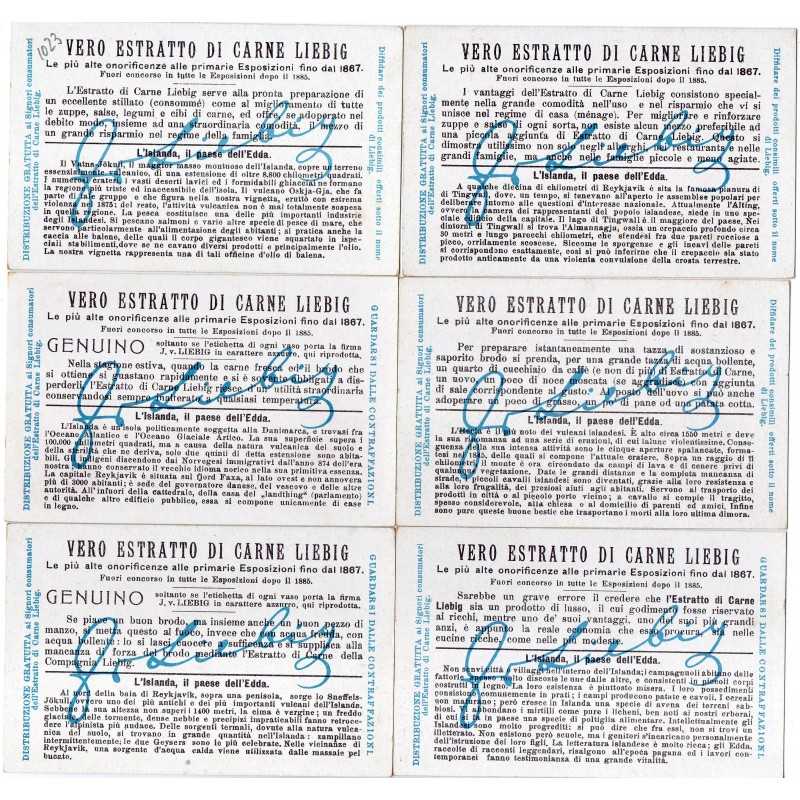 1023
VERO ESTRATTO DI CARNE LIEBIG
Le più alte onorificenze alle primarie Esposizioni fino dal 1867.
Fuori concorso in tutte le Esposizioni dopo il 1885.
L'Estratto di Carne Liebig serve alla pronta preparazione di
un eccellente stillato (consommé) come al miglioramento di tutte
le zuppe, salse, legumi e chi di carne, ed offre, adoperato nel
debito modo, insieme ad una straordinaria comodità, il mezzo di
un grande risparmio nel regime della famiglia.
L'Islanda, il paese dell'Edda.
Il Vatna-Jökull, il maggior masso montuoso dell'Islanda, copre un terreno
essenzialmente vulcanico, di una estensione di oltre 8.800 chilom. quadrati.
I numerosi crateri, i vasti deserti lavici ed i formidabili ghiacciai ne formano
la regione più triste ed inaccessibile dell'isola. Il vulcano Oskja-Gja, che fa
parte del gruppo e che figura nella nostra vignetta, eruttò con estrema
violenza nel 1875; del resto, l'attività vulcanica non è mai totalmente sospesa
in quella regione. La pesca costituisce una delle più importanti industrie
degli Islandesi. Si pescano salmoni e varie altre specie di pesce di mare, che
servono particolarmente all'alimentazione degli abitanti; si pratica anche la
caccia alle balene, delle quali il corpo gigantesco viene squartato in ispe-
ciali stabilimenti, dove se ne cavano diversi prodotti e principalmente l'olio.
La nostra vignetta rappresenta una di tali officine d'olio di balena.
DISTRIBUZIONE GRATUITA ai Signori consumatori
dell'Estratto di Carne Liebig.
Diffidare dei prodotti consimili offerti sotto il nome
di Liebig.
J. v. Liebig
VERO ESTRATTO DI CARNE LIEBIG
Le più alte onorificenze alle primarie Esposizioni fino dal 1867.
Fuori concorso in tutte le Esposizioni dopo il 1885.
I vantaggi dell'Estratto di Carne Liebig consistono special-
mente nella grande comodità nell'uso e nel risparmio che vi si
unisce nel regime di casa (ménage). Per migliorare e rinforzare
zuppe e salse di ogni sorta non esiste alcun mezzo preferibile ad
una piccola aggiunta di Estratto di Carne Liebig. Ciò è
dimostra utilissimo non solo negli alberghi, restaurants e nelle
grandi famiglie, ma anche nelle famiglie piccole e meno agiate.
L'Islanda, il paese dell'Edda.
A qualche diecina di chilometri di Reykjavik è sita la famosa pianura
di Tingwall, dove, un tempo, si tenevano all'aperto le assemblee popolari per
deliberare intorno alle questioni d'interesse nazionale. Attualmente l'Alfing,
ovvero camera dei rappresentanti del popolo islandese, siede in uno spe-
ciale edificio della capitale. Il lago di Tingwall è il maggiore del paese. Nei
dintorni di Tingwall si trova l'Almannagju, ossia un crepaccio profondo circa
30 metri e lungo parecchi chilometri, che stendesi fra due pareti rocciose a
picco, orridamente scoscese. Siccome le sporgenze e gli incavi delle pareti
si corrispondono esattamente, così si può inferirne che il crepaccio sia stato
prodotto anticamente da una violenta convulsione della crosta terrestre.
DISTRIBUZIONE GRATUITA ai Signori consumatori
dell'Estratto di Carne Liebig.
Diffidare dei prodotti consimili offerti sotto il nome
di Liebig.
J. v. Liebig
VERO ESTRATTO DI CARNE LIEBIG
Le più alte onorificenze alle primarie Esposizioni fino dal 1867.
Fuori concorso in tutte le Esposizioni dopo il 1885.
GENUINO soltanto se l'etichetta di ogni vaso porta la firma
J. v. LIEBIG in carattere azzurro, qui riprodotta.
Nella stagione estiva, quando la carne fresca, che
si ottiene si guasta rapidamente e si è sovente obbligati a di-
sperderli, l'Estratto di Carne Liebig rese un'utilità straordinaria
conservandosi sempre a qualsiasi temperatura.
L'Islanda, il paese dell'Edda.
L'Islanda è un'isola politicamente soggetta alla Danimarca, e trovasi fra
l'Oceano Atlantico e l'Oceano Glaciale Artico. La sua superficie supera i
100.000 chilometri quadrati, ma a causa della natura vulcanica del suolo e
della rigidità che ne deriva, solo due quinti di detta estensione sono abita-
bili. Gli indigeni discendono dai Norvegesi immigrativi dall'anno 874 dell'era
nostra ed hanno conservato il vecchio idioma norico nella sua primitiva essenza.
La capitale Reykjavik è situata sul fjord Faxa, al lato ovest e non annovera
più di 3000 abitanti; è sede del governatore danese, del vescovo e delle altre
autorità. All'infuori della cattedrale, della casa del „landthing“ (parlamento)
e di qualche altro edificio pubblico, essa si compone unicamente di case
in legno.
DISTRIBUZIONE GRATUITA ai Signori consumatori
dell'Estratto di Carne Liebig.
GUARDARSI DALLE CONTRAFFAZIONI.
J. v. Liebig
VERO ESTRATTO DI CARNE LIEBIG
Le più alte onorificenze alle primarie Esposizioni fino dal 1867.
Fuori concorso in tutte le Esposizioni dopo il 1885.
Per preparare istantaneamente una tazza di sostanzioso e
saporito brodo si prenda, per una grande tazza di acqua bollente,
un quarto di cucchiaio da caffè (e non di più) di Estratto di Carne,
un uovo, un poco di noce moscata (se aggradita) e un'aggiunta
di sale corrispondente al gusto. Invece dell'uovo si può anche
adoperare un poco di grasso, un po' di pane od una patata cotta.
L'Islanda, il paese dell'Edda.
L'Hekla è il più noto dei vulcani islandesi. È alto circa 1550 metri e deve
la sua rinomanza ad una serie di eruzioni, di cui talune violentissime. Conse-
guenza della sua intensa attività sono le cinque aperture spalancate, forma-
tesi nei fianchi, delle quali si compone l'attuale cratere. Sopra un raggio di 11
chilometri il monte è circondato da campi di lava e di cenere privi di
qualsiasi vegetazione. Date le grandi distanze e la completa mancanza di
strade, i piccoli cavalli islandesi sono diventati, grazie alla loro resistenza e
alla loro frugalità, dei preziosi aiuti agli abitanti. Servono al trasporto dei
prodotti in città o al piccolo porto vicino; a cavallo si compie il tragitto,
spesso considerevole, alla chiesa o al domicilio di parenti ed amici. Infine
sono pure queste buone bestie che trasportano i morti alla loro ultima dimora.
DISTRIBUZIONE GRATUITA ai Signori consumatori
dell'Estratto di Carne Liebig.
Diffidare dei prodotti consimili offerti sotto il nome
di Liebig.
J. v. Liebig
VERO ESTRATTO DI CARNE LIEBIG
Le più alte onorificenze alle primarie Esposizioni fino dal 1867.
Fuori concorso in tutte le Esposizioni dopo il 1885.
GENUINO soltanto se l'etichetta di ogni vaso porta la firma
J. v. LIEBIG in carattere azzurro, qui riprodotta.
Se piace un buon brodo, ed insieme anche un buon pezzo di
manzo, si metta questo al fuoco, invece che con acqua fredda, con
acqua bollente, lo si lasci cuocere a sufficienza e si supplisca alla
mancanza di forza del brodo mediante l'Estratto di Carne della
Compagnia Liebig.
L'Islanda, il paese dell'Edda.
Al nord della baia di Reykjavik, sopra una penisola, sorge lo Sneffels-
Jökull, vero uno dei più antichi e dei più importanti vulcani dell'Islanda.
Sebbene la sua altezza non superi i 1400 metri, la cima è vergine; un freddo
glaciale, delle tormente, dense nebbie e precipizi impraticabili fanno retroce-
dere l'alpinista più audace. Delle sorgenti termali, dovute alla natura vulca-
nica del suolo, si trovano in grande quantità nell'Islanda: zampillano
intermittentemente; le due Geysers sono le più celebrate. Nelle vicinanze di
Reykjavik, una sorgente d'acqua calda viene utilizzata dalle massaie pel
bucato.
DISTRIBUZIONE GRATUITA ai Signori consumatori
dell'Estratto di Carne Liebig.
GUARDARSI DALLE CONTRAFFAZIONI.
J. v. Liebig
VERO ESTRATTO DI CARNE LIEBIG
Le più alte onorificenze alle primarie Esposizioni fino dal 1867.
Fuori concorso in tutte le Esposizioni dopo il 1885.
Sarebbe un grave errore il credere che l'Estratto di Carne
Liebig sia un prodotto di lusso, il cui godimento fosse riservato
ai ricchi, mentre uno de' suoi vantaggi, uno dei suoi più grandi
anzi, è appunto la reale economia che esso procura sì nelle
cucine ricche, come nelle più modeste.
L'Islanda, il paese dell'Edda.
Non vi sono città o villaggi nell'interno dell'Islanda; i campagnuoli abitano delle
fattorie, molto discoste le une dalle altre, e consistenti in corpi
costrutti in legno. La loro esistenza è piuttosto misera. I loro possedimenti
consistono comunemente in prati; i campi producono patate e cavoli. I cereali
non maturano; però cresce in Islanda una specie di avena dei terreni sab-
biosi. I montoni come pure i licheni, ben noti ai nostri erborai,
di cui in paese una specie di poltiglia alimentare. Intellettualmente gli
Islandesi sono molto progrediti: si può dire che fra essi, non si trovi un
Non esistono però scuole, ma i genitori s'incaricano personalmente
dell'istruzione dei loro figli. La letteratura islandese è molto ricca; gli Edda,
raccolte di racconti leggendari, risalgono all'epoca pagana ed i lavori con-
temporanei fanno testimonianza di una grande vitalità.
DISTRIBUZIONE GRATUITA ai Signori consumatori
dell'Estratto di Carne Liebig.
GUARDARSI DALLE CONTRAFFAZIONI.
J. v. Liebig